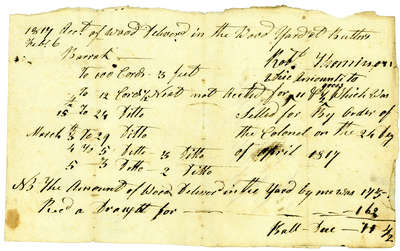 1817 Act. of Wood Deliverd in the Wood Yard at Butlers
Feb. 6 Barrak
To 100 Cords 3 feet
To 12 Cord ½ Neat not Acted for
15 To 24 Ditto
March 3 To 29 Ditto
4 To 5 Ditto 3 Ditto
5 3 Ditto 2 Ditto
The Amounts to
which Was
Called for By Order of
the Colonel on the 24 day
of April 1817
NB The Amount of Wood Deliver in the Yard by me was 175
Recd a Draught for — 162
Ball Due — 11 ½